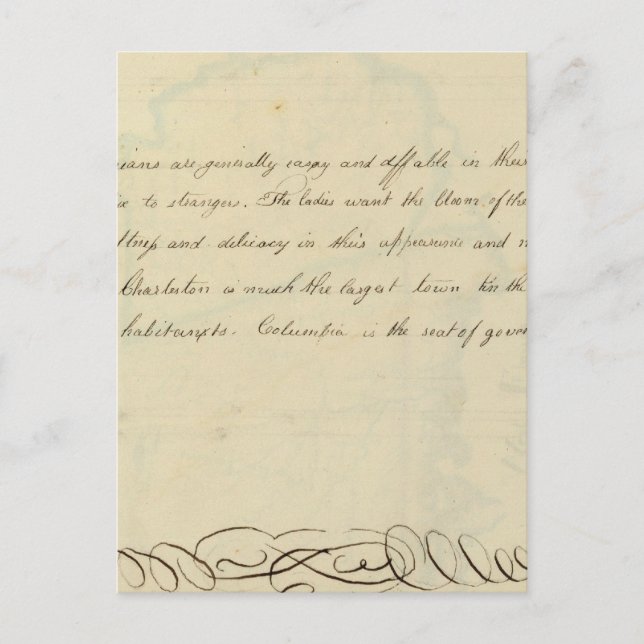 ians are generally easay and affable in their
ive to strangers. The ladies want the bloom of the
and delicacy in their appearance and
Charleston is much the largest town tin the
habitanxts. Columbia is the seat of gover